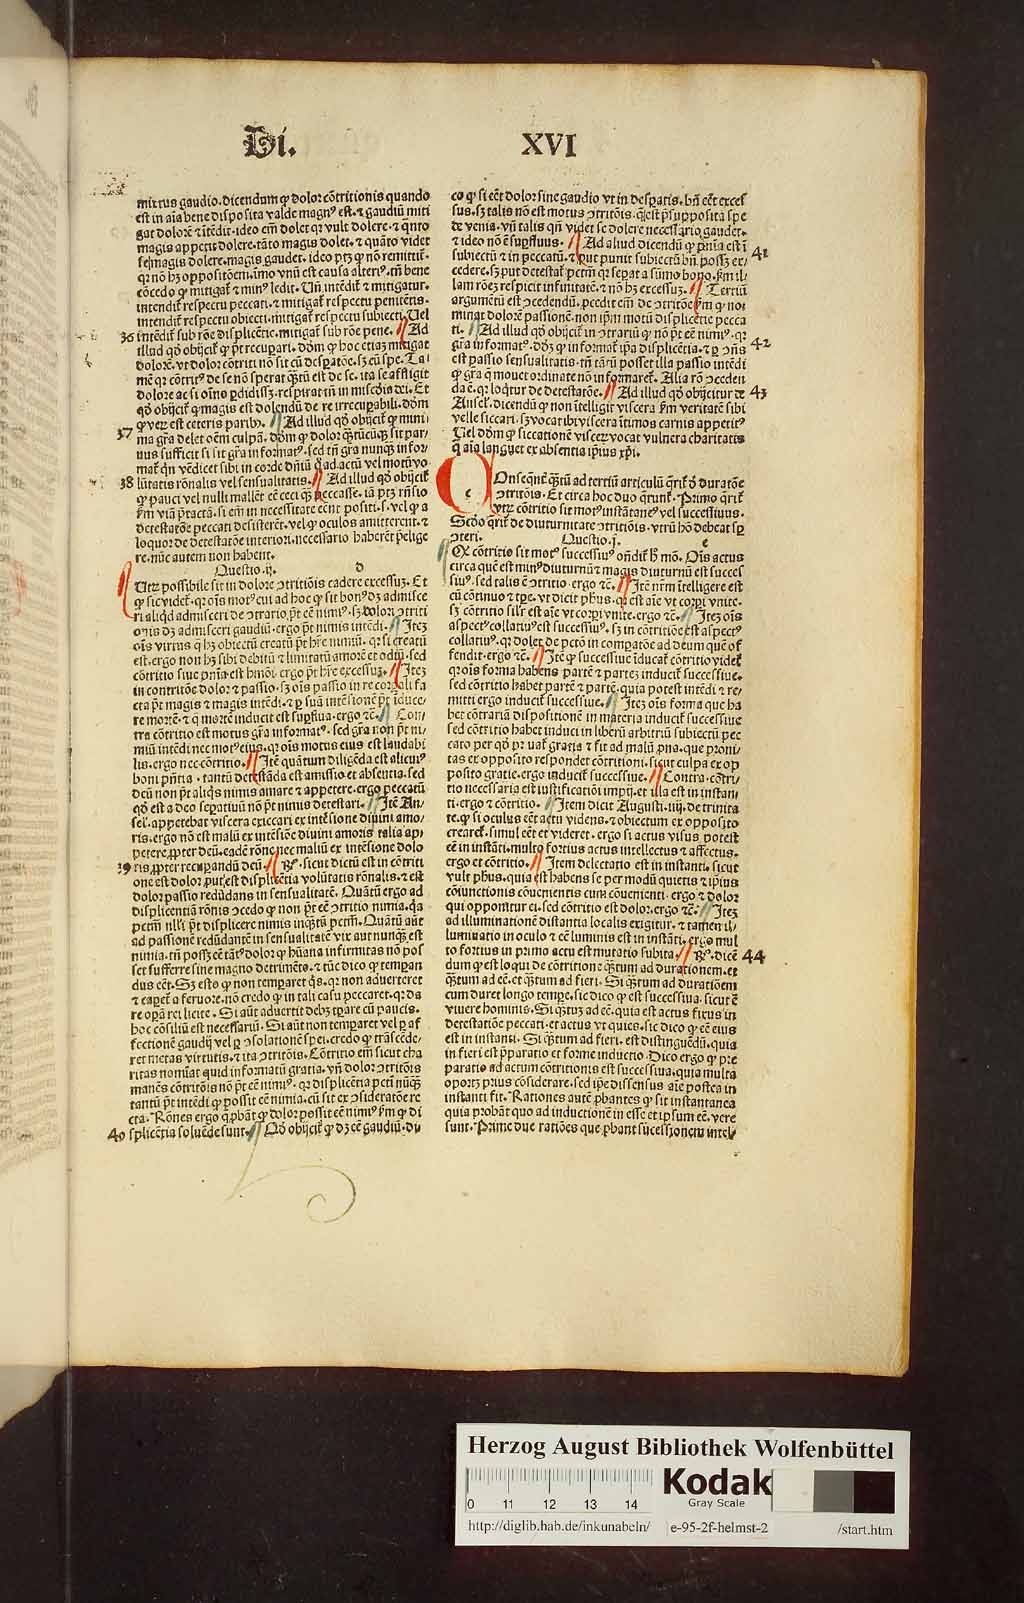 Di. XVI
mixtus gaudio. dicendum ꝙ dolor cōtritionis quando
est in aīa bene disposita valde magnꝰ est. ⁊ gaudiū miti
gat dolorē ⁊ ītēdit. ideo em̄ dolet qꝛ vult dolere. ⁊ q̄nto
magis appetit dolere. tāto magis dolet. ⁊ quāto videt
se magis dolere. magis gaudet. ideo ptꝫ ꝙ nō remittit᷑.
qꝛ nō hꝫ oppositōem. imo vnū est causa alteriꝰ. tn̄ bene
cōcedo ꝙ mitigat᷑ ⁊ minꝰ ledit. Vn̄ intēdit ⁊ mitigatur.
intendit᷑ respectu peccati. ⁊ mitigat᷑ respectu penitētis.
intendit᷑ respectu obiecti. mitigat᷑ respectu subiecti. Vel
36 intēdit᷑ sub rōe displicētie. mitigat᷑ sub rōe pene. Ad
illud qđ obijcit᷑ ꝙ p̄t recuꝑari. dōm ꝙ hoc etiaꝫ mitigat
dolorē. vt dolor cōtriti nō sit cū desꝑatōe. sꝫ cū spe. Ta
mē qꝛ cōtritꝰ de se nō sperat q̄ꝫtū est de se. ita se affligit
dolore ac si oīno ꝑdidissꝫ. respirat tn̄ in miscđia dei. Et
qđ obijcit᷑ ꝙ magis est dolendū de re irrecuꝑabili. dōm
ꝙ veꝝ est ceteris paribꝰ. Ad illud qđ obijcit᷑ ꝙ mini
37 ma gr̄a delet oēm culpā. dōm ꝙ dolor q̄ꝫtūcūqꝫ sit par
uus sufficit si sit gr̄a informatꝰ. sed tn̄ gr̄a nunqꝫ infor
mat᷑ q̄n vēdicet sibi in corde dn̄iū q̊ad actū vel motū vo
38 lūtatis rōnalis vel sensualitatis. Ad illud qđ obijcit᷑
ꝙ pauci vel nulli mallēt eē ceci qꝫ peccasse. iā ptꝫ rn̄sio
ẜm viā p̄tactā. si em̄ in necessitate eēnt positi. s. vel ꝙ a
detestatōe peccati desisterēt. vel ꝙ oculos amitterent. ⁊
loquor de detestatōe interiori. necessario haberēt p̄elige
re. nūc autem non habent.
Questio .ij. d
Utꝝ possibile sit in dolore ↄtritiōis cadere excessuꝫ. Et
ꝙ sic videt᷑. qꝛ oīs motꝰ cui ad hoc ꝙ sit bonꝰ dꝫ admisce
ri aliqđ admisceri de ↄtrario. p̄t eē nimiꝰ. sꝫ dolori ↄtriti
onis dꝫ admisceri gaudiū. ergo p̄t nimis intēdi. Iteꝫ
oīs virtus q̄ hꝫ obiectū creatū p̄t hr̄e nimiū. qꝛ si creatū
est. ergo non hꝫ sibi debitū ⁊ limitatū amorē et odiū. sed
cōtritio siue pn̄ia est hmōi. ergo p̄t hr̄e excessuꝫ. Iteꝫ
in contritiōe dolor ē passio. sꝫ oīs passio in re corꝑali fa
cta p̄t magis ⁊ magis intēdi. ⁊ ꝑ suā intēsionē p̄t īduce
re mortē. ⁊ q̄ mortē inducit est suꝑflua. ergo ⁊c̄. Con
tra cōtritio est motus gr̄a informatꝰ. sed gr̄a non p̄t ni
miū intēdi nec motꝰ eius. qꝛ oīs motus eius est laudabi
lis. ergo nec cōtritio. Itē quātum diligēda est alicuiꝰ
boni pn̄tia. tantū detestāda est amissio et absentia. sed
deū non p̄t aliqͥs nimis amare ⁊ appetere. ergo peccatū
qđ est a deo seꝑatiuū nō p̄t nimis detestari. Itē An
sel. appetebat viscera exiccari ex intēsione diuini amo
ris. ergo nō est malū ex intēsiōe diuini amoris talia ap
petere. ꝓpter deū. eadē rōne nec maliū ex intēsione dolo
39 ris ꝓpter recuꝑandū deū. Rͦ. sicut dictū est in cōtriti
one est dolor. put est displicētia volūtatis rōnalis. ⁊ est
dolor passio redūdans in sensualitatē. Quātū ergo ad
displicentiā rōnis ↄcedo ꝙ non p̄t eē ↄtritio nimia. qꝛ
pctm̄ nlľi p̄t displicere nimis inqꝫtū pctm̄. Quātū aūt
ad passionē redūdantē in sensualitatē vix aut nunqꝫ est
nimia. tn̄ possꝫ eē tantꝰ dolor ꝙ hūana infirmitas nō pos
set sufferre sine magno detrimēto. ⁊ tūc dico ꝙ temꝑan
dus eēt. Sꝫ esto ꝙ non temparet qͥs. qꝛ non aduerteret
⁊ caꝑet᷑ a feruore. nō credo ꝙ in tali casu peccaret. qꝛ da
re oꝑā rei licite. Si aūt aduertit debꝫ tꝑare cū paucis.
hoc cōsiliū est necessariū. Si aūt non temparet vel ꝑ af
fectionē gaudij vel ꝑ ↄsolationē spei. credo ꝙ trāscēde
ret metas virtutis. ⁊ ita ↄtritōis. Cōtritio em̄ sicut cha
ritas nomīat quid informatū gratia. vn̄ dolor ↄtritōis
manēs cōtritōis nō p̄t eē nimiꝰ. qꝛ displicētia pcti nūqꝫ
tantū p̄t intēdi ꝙ possit eē nimia. cū sit ex ↄsideratōe re
cta. Rōnes ergo q̄ ꝓbāt ꝙ dolor possit eē nimiꝰ ẜm ꝙ di
40 splicētia soluēde sunt. Qđ obijcit᷑ ꝙ dꝫ eē gaudiū. di
co ꝙ si eēt dolor sine gaudio vt in desꝑatis. bn̄ eēt exces
sus. sꝫ talis nō est motus ↄtritōis. q̄ est p̄supposita spe
de venia. vn̄ talis qn̄ videt se dolere necessario gaudet.
⁊ ideo nō ē suꝑfluus. Ad aliud dicendū ꝙ pn̄ia est ī
41 subiectū ⁊ in peccatū. ⁊ put punit subiectū bn̄ possꝫ ex
cedere. sꝫ put detestat᷑ pctm̄ qꝛ seꝑat a sūmo bono. ẜm il
lam rōeꝫ respicit infinitatē. ⁊ nō hꝫ excessuꝫ. Tertiū
argumētū est ↄcedendū. ꝓcedit em̄ de ↄtritōe ẜm ꝙ noi
minat dolorē passionē. non ip̄m motū displicētie pecca
ti. Ad illud qđ obijcit᷑ in ↄtrariū ꝙ nō p̄t eē nimiꝰ. qꝛ
42 gr̄a informatꝰ. dōꝫ ꝙ informat᷑ ip̄a displicētia. ⁊ ꝑ ↄn̄s
est passio sensualitatis. tn̄ tātū posset illa passio intēdi
ꝙ gr̄a q̄ mouet ordinate nō informaret. Alia rō ↄceden
da ē. qꝛ loqͥtur de detestatōe. Ad illud qđ obijcitur de
43 Ansel. dicendū ꝙ non ītelligit viscera ẜm veritatē sibi
velle siccari. sꝫ vocat ibi viscera ītimos carnis appetitꝰ
Uel dōm ꝙ siccationē visceꝝ vocat vulnera charitatis
q̄ aīa languet ex absentia ip̄ius xp̄i.
Onseqn̄t᷑ q̄ꝫtū ad tertiū articulū q̄rit᷑ đ duratōe
ↄtritōis. Et circa hoc duo q̄runt᷑. Primo q̄rit᷑
vtꝝ cōtritio sit motꝰ instātaneꝰ vel successiuus.
Scđo q̄rit᷑ de diuturnitate ↄtritiōis. vtrū hō debeat sꝑ
ↄteri. Questio .j. e
Qꝫ cōtritio sit motꝰ successiuꝰ on̄dit᷑ h̊ mō. Oīs actus
circa quē est minꝰ diuturnū ⁊ magis diuturnū est succes
siuꝰ. sed talis ē ↄtritio. ergo ⁊c̄. Itē nr̄m ītelligere est
cū cōtinuo ⁊ tꝑe. vt dicit ph̄us. qꝛ est aīe vt corꝑi vnite.
sꝫ cōtritio silr̄ est aīe vt corꝑi vnite. ergo ⁊c̄. Iteꝫ oīs
aspectꝰ collatiuꝰ est successiuꝰ. sꝫ in cōtritiōe est aspectꝰ
collatiuꝰ. qꝛ dolet de pctō in compatōe ad deum quē of
fendit. ergo ⁊c̄. Itē ꝙ successiue īducat᷑ cōtritio videt᷑
qꝛ oīs forma habens partē ⁊ partez inducit᷑ successiue.
sed cōtritio habet partē ⁊ partē. quia potest intēdi ⁊ re
mitti ergo inducit᷑ successiue. Iteꝫ oīs forma que ha
bet cōtrariā dispositionē in materia inducit᷑ successiue
sed cōtritio habet induci in liberū arbitriū subiectū pec
cato per qđ pͥuat᷑ gratia ⁊ fit ad malū prona. que proni
tas ex opposito respondet cōtritioni. sicut culpa ex op
posito gratie. ergo inducit᷑ successiue. Contra. cōtri
tio necessaria est iustificatiōi impij. et illa est in instan
ti. ergo ⁊ cōtritio. Item dicit Augusti. iiij. de trinita
te. ꝙ si oculus eēt actu videns. ⁊ obiectum ex opposito
crearet᷑. simul eēt et videret. ergo si actus visus potest
eē in instāti. multo fortius actus intellectus ⁊ affectus.
ergo et cōtritio. Item delectatio est in instanti. sicut
vult ph̄us. quia est habens se per modū quietis ⁊ ip̄ius
cōiunctionis cōuenientis cum cōuenienti. ergo ⁊ dolor
qui opponitur ei. sed cōtritio est dolor. ergo ⁊c̄. Iteꝫ
ad illuminationē distantia localis exigitur. ⁊ tamen il
luminatio in oculo ⁊ eē luminis est in instāti. ergo mul
44 to fortius in primo actu est mutatio subita. Rͦ. dicē
dum ꝙ est loqui de cōtritione q̄ꝫtum ad durationem. et
q̄ꝫtum ad eē. et q̄ꝫtum ad fieri. Si q̄ꝫtum ad duratiōem
cum duret longo tempe. sic dico ꝙ est successiua. sicut ē
viuere hominis. Si q̄ꝫtuꝫ ad eē. quia est actus fixus in
detestatiōe peccati. et actus vt quies. sic dico ꝙ eē eius
est in instanti. Si q̄ꝫtum ad fieri. est distinguēdū. quia
in fieri est p̄paratio et forme inductio. Dico ergo ꝙ pre
paratio ad actum cōtritionis est successiua. quia multa
oportꝫ prius cōsiderare. sed ip̄e dissensus aīe postea in
instanti fit. Rationes autē ꝓbantes ꝙ sit instantanea
quia probāt quo ad inductionē in esse et ipsum eē. vere
sunt. Prime due ratiōes que ꝓbant sūcessionem intel
Herzog August Bibliothek Wolfenbüttel
Kodak
Gray Scale
0 11 12 13 14
http://diglib.hab.de/inkunabeln/ e-95-2f-helmst-2 /start.htm